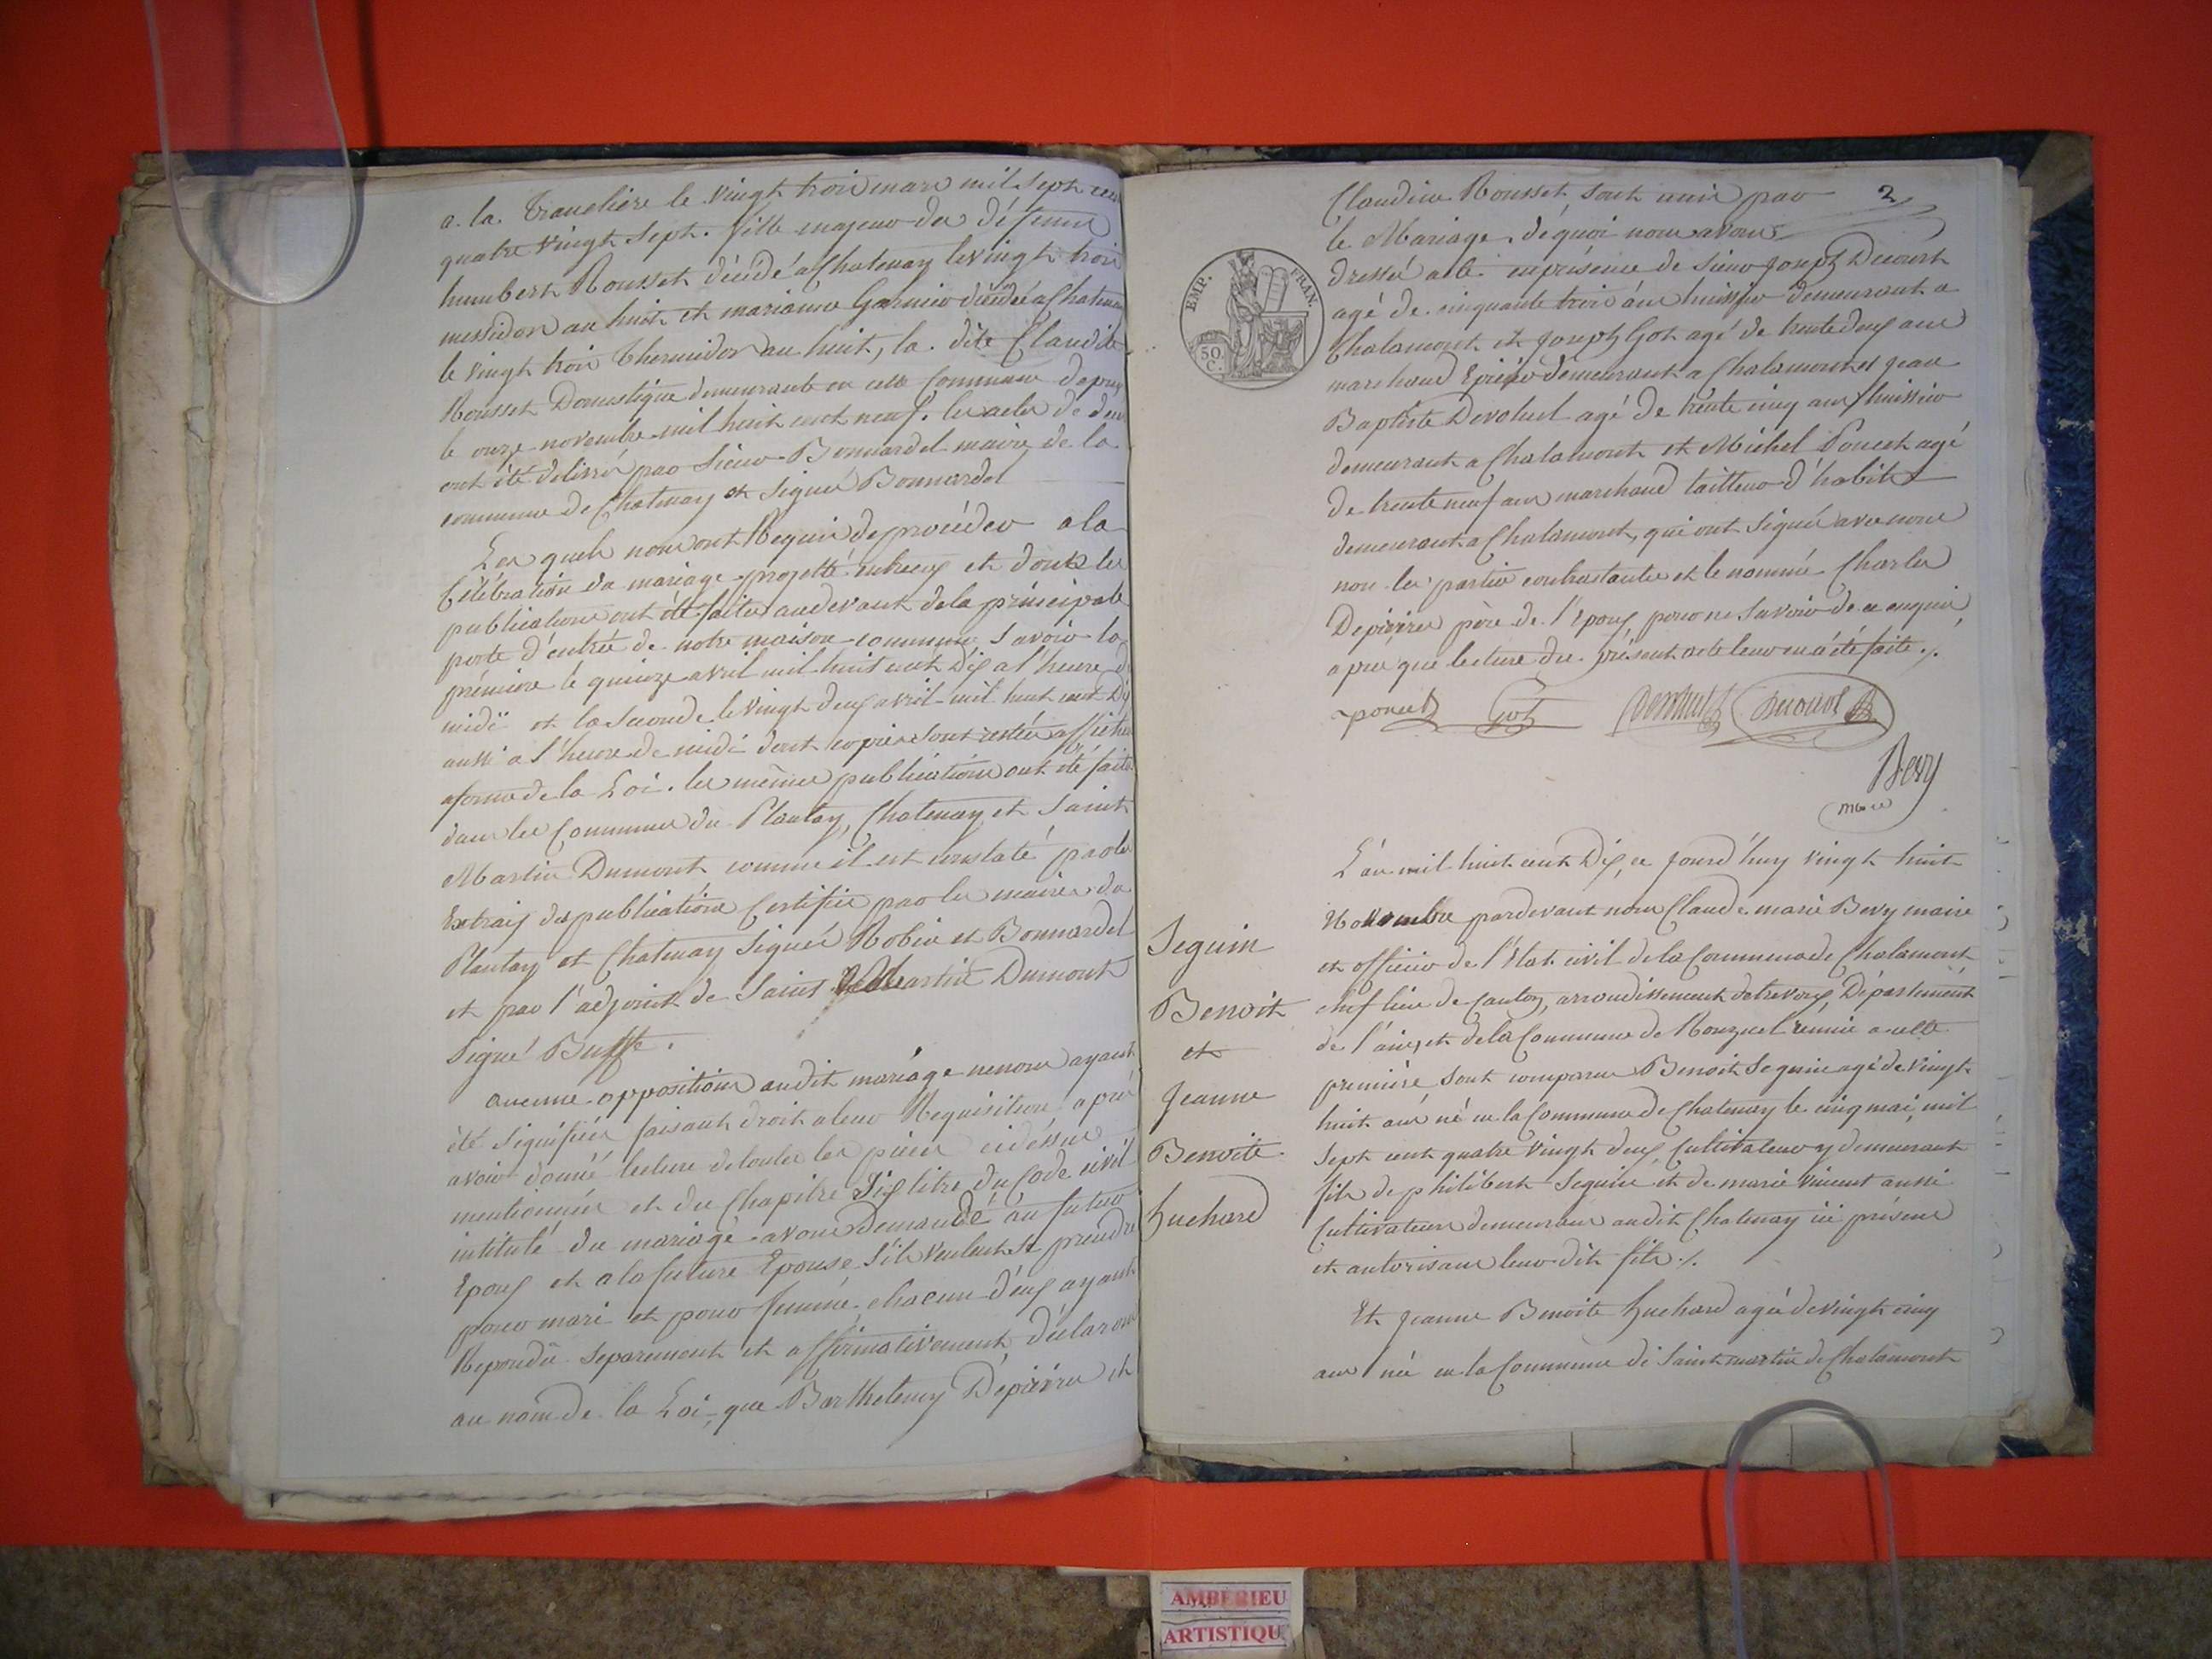 a la Tranclière le vingt trois mars mil sept cent
quatre vingt sept. fille majeur des défunts
humbert Rousset décédé a Chatenay le vingt trois
messidor an huit et marianne Garnier décédée a Chatenay
le vingt trois Thermidor an huit, la dite Claudine
Rousset Domestique demeurante en cette Commune depuis
le onze novembre mil huit cent neuf. les actes de décès
ont été délivrés par sieur Bonnardel maire de la
commune de Chatenay et signés Bonnardel
Les quels nous ont Requis de procéder a la
Célébration du mariage projetté entreux et dont les
publications ont été faites audevant de la principale
porte d'entrée de notre maison commune, savoir la
première le quinze avril mil huit cent Dix a l'heure de
midi et la seconde le vingt deux avril mil huit cent Dix
aussi a l'heure de midi dont copies sont restées affichées
a forme de la Loi. les mêmes publications ont été faites
dans les Communes du Plantay, Chatenay et Saint
Martin Dumont comme il est constaté par les
Extraits des publications Certifiés par les maires du
Plantay et Chatenay signés Robin et Bonnardel
et par l'adjoint de Saint Martin Dumont
signé Buffe.
aucune opposition audit mariage ne nous ayant
été signifiée faisant droit a leur Requisition, après
avoir donné lecture de toutes les pièces cidéssus
mentionnées et du Chapitre Six titre du Code civil
intitulé du mariage avons Demandé au futur
Epoux et a la future Epouse s'ils veulent se prendre
pour mari et pour femme, chacun d'eux ayant
Repondu séparement et affirmativement, déclarons
au nom de la Loi, que Barthelemy Depierres et
2
Claudine Rousset, sont unis par
le Mariage. de quoi nous avons
dressé acte en présence de sieur Joseph Decourt
agé de cinquante trois ans huissier demeurant a
Chalamont et Joseph Got agé de trente deux ans
marchand Epicier demeurant a Chalamont et Jean
Baptiste Devoluet agé de trente cinq ans huissier
demeurant a Chalamont et Michel Poncet agé
de trente neuf ans marchand tailleur d'habits
demeurant a Chalamont, qui ont signés avec nous
non les parties contractantes et le nommé Charles
Depierres père de l'Epoux pour ne savoir de ce enquis,
après que lecture du présent acte leur en a été faite ./.
poncet Got
Bevy
maire
EMP. FRAN.
50.
C.
L'an mil huit cent Dix, ce jourd'huy vingt huit
Novembre pardevant nous Claude marie Bevy maire
et officier de l'Etat civil de la Commune de Chalamont
chef lieu de Canton, arrondissement de trevoux, Département
de l'ain, et de la Commune de Ronzuel réunie a celle
première sont comparus Benoit Seguin agé de vingt
huit ans né en la Commune de Chatenay le cinq mai mil
sept cent quatre vingt deux Cultivateur y demeurant
fils de philibert Seguin et de marie vincent aussi
Cultivateurs demeurans audit Chatenay ici présens
et autorisans leur dit fils ./.
Seguin
Benoit
et
Jeanne
Benoite
huchard
Et Jeanne Benoite huchard agée de vingt cinq
ans née en la Commune de Saint martin de Chalamont
AMBERIEU
ARTISTIQU